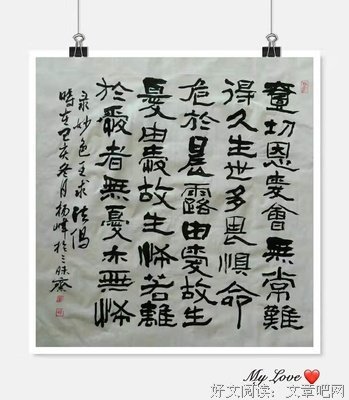 壹切恩愛會無常難
得久生世多畏懼命
危於晨露由愛故生
憂由愛故生怖若離
於愛者無憂亦無怖
录妙色王求法偈
時在己亥冬月楊峰於三味齋
My Love
好文阅读：文章吧网